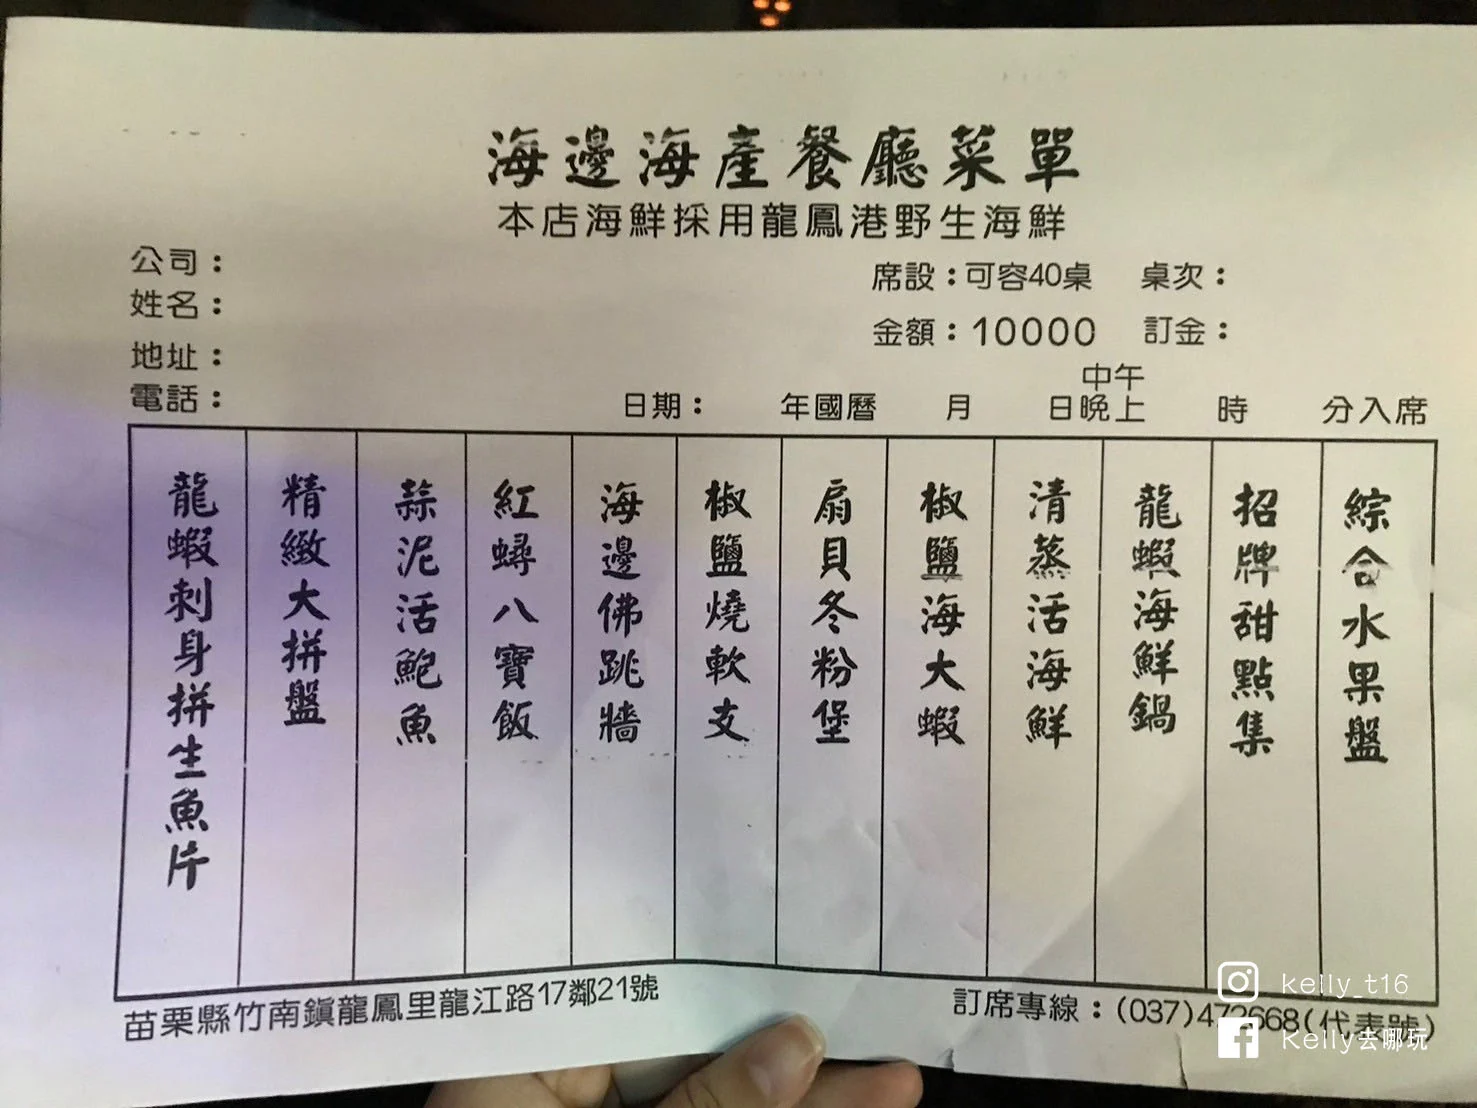 海邊海產餐廳菜單
本店海鮮採用龍鳳港野生海鮮
公司：
席設：可容40桌 桌次：
姓名：
金額：10000 訂金：
地址：
電話：
中午
日期： 年國曆 月 日晚上 時 分入席
龍蝦刺身拼生魚片
精緻大拼盤
蒜泥活鮑魚
紅蟳八寶飯
海邊佛跳牆
椒鹽燒軟支
扇貝冬粉堡
椒鹽海大蝦
清蒸活海鮮
龍蝦海鮮鍋
招牌甜點集
綜合水果盤
苗栗縣竹南鎮龍鳳里龍江路17鄰21號
訂席專線：(037)472668(代表號)
kelly_t16
Kelly去哪玩